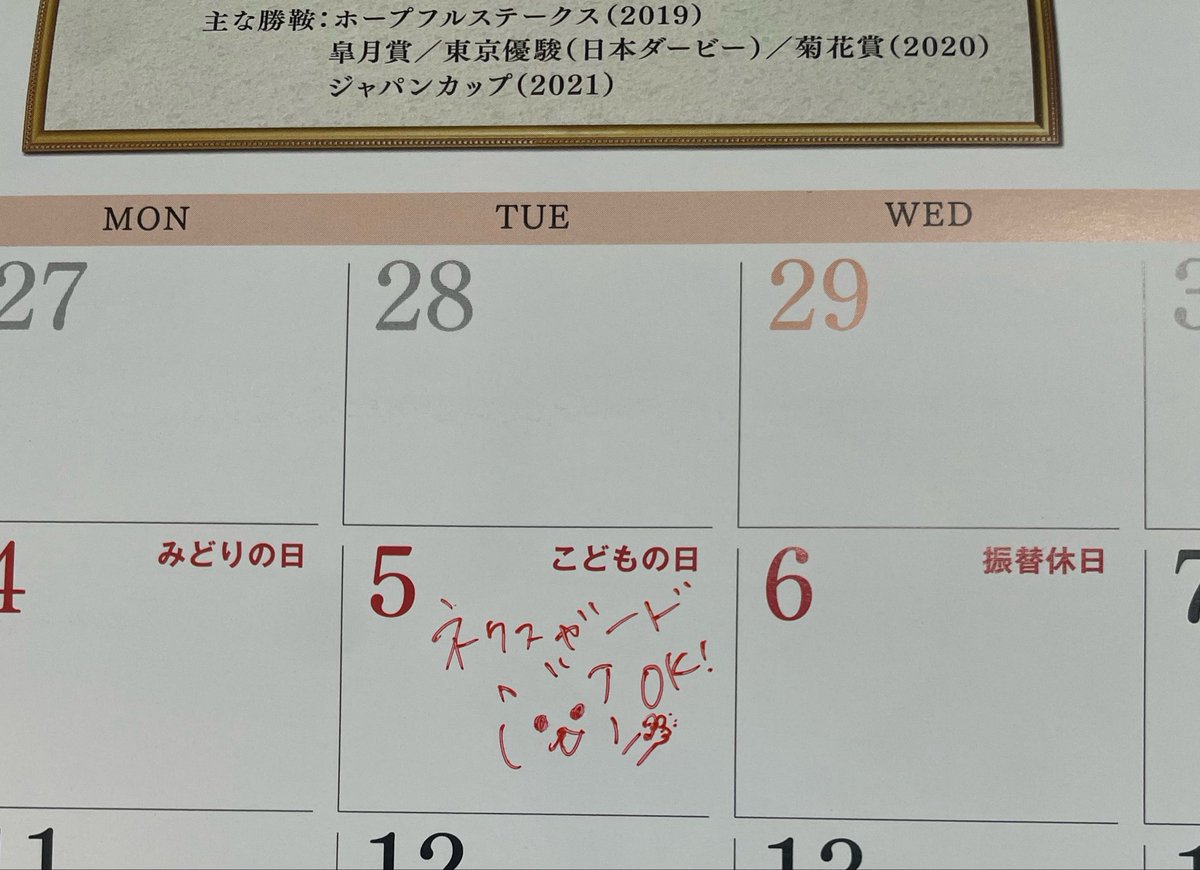 主な勝鞍：ホープフルステークス（2019）
皐月賞／東京優駿（日本ダービー）／菊花賞（2020）
ジャパンカップ（2021）
MON TUE WED
27 28 29 3
4 みどりの日 5 こどもの日 6 振替休日 7
ネクスガード
OK!
11 12 13 1